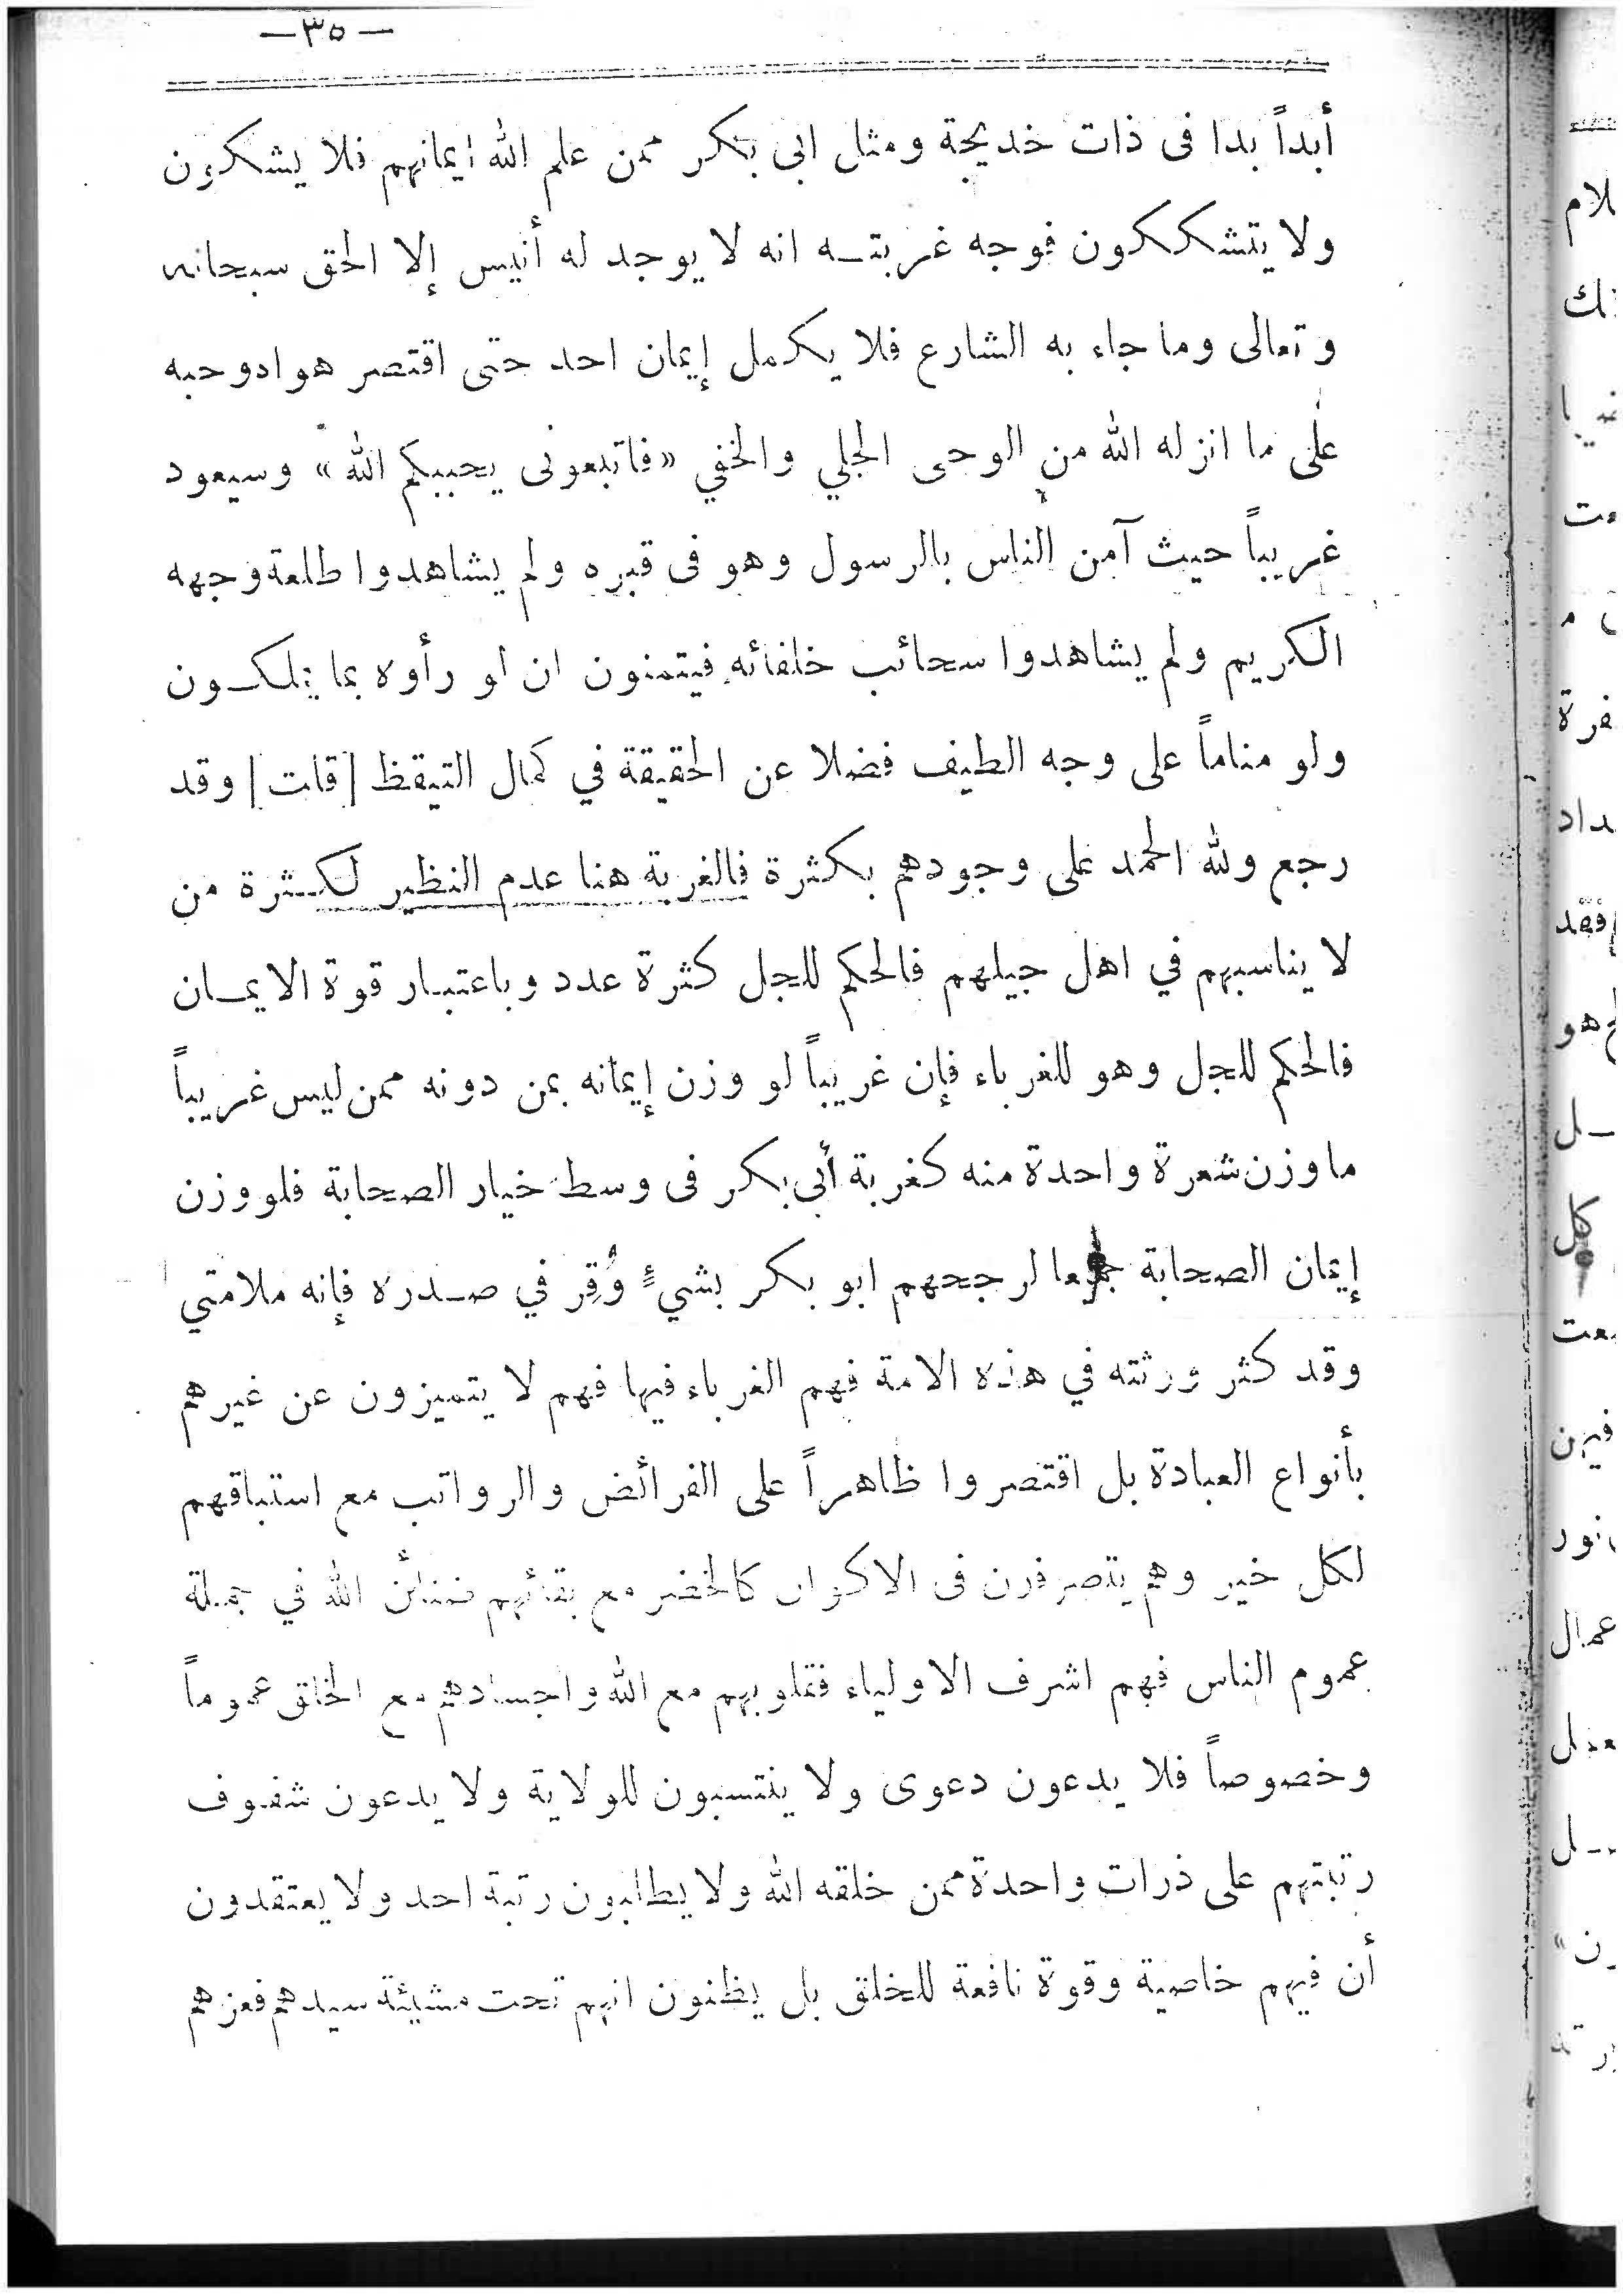 —٣٥—
أبداً بدا فى ذات خديجة ومثل ابى بكر ممن علم الله ايمانهم فلا يشكون
ولا يتشككون فوجه غربته انه لا يوجد له أنيس إلا الحق سبحانه
وتعالى وما جاء به الشارع فلا يكمل إيمان احد حتى اقتصر هواه وحبه
على ما انزله الله من الوحى الجلي والخفي «فاتبعونى يحببكم الله» وسيعود
غريباً حيث آمن الناس بالرسول وهو فى قبره ولم يشاهدوا طلعة وجهه
الكريم ولم يشاهدوا سحائب خلفائه فيتمنون ان لو رأوه بما يملكون
ولو مناماً على وجه الطيف فضلا عن الحقيقة في كمال التيقظ [قلت] وقد
رجع ولله الحمد على وجودهم بكثرة فالغربة هنا عدم النظير لكثرة من
لا يناسبهم في اهل جيلهم فالحكم للجل كثرة عدد وباعتبار قوة الايمان
فالحكم للجل وهو للغرباء فإن غريباً لو وزن إيمانه بمن دونه ممن ليس غريباً
ما وزن شعرة واحدة منه كغربة أبى بكر فى وسط خيار الصحابة فلو وزن
إيمان الصحابة جمعا لرجحهم ابو بكر بشيءٍ وُقِر في صدره فإنه ملامتي
وقد كثر ورثته في هذه الامة فهم الغرباء فيها فهم لا يتميزون عن غيرهم
بأنواع العبادة بل اقتصروا ظاهراً على الفرائض والرواتب مع استباقهم
لكل خير وهم يتصرفون فى الاكوان كالخضر مع بقائهم ضنائن الله في جملة
عموم الناس فهم اشرف الاولياء فقلوبهم مع الله واجسادهم مع الخلق عموماً
وخصوصاً فلا يدعون دعوى ولا ينتسبون للولاية ولا يدعون شفوف
رتبتهم على ذرات واحدة ممن خلقه الله ولا يطلبون رتبة احد ولا يعتقدون
أن فيهم خاصية وقوة نافعة للخلق بل يظنون انهم تحت مشيئة سيدهم فعزهم